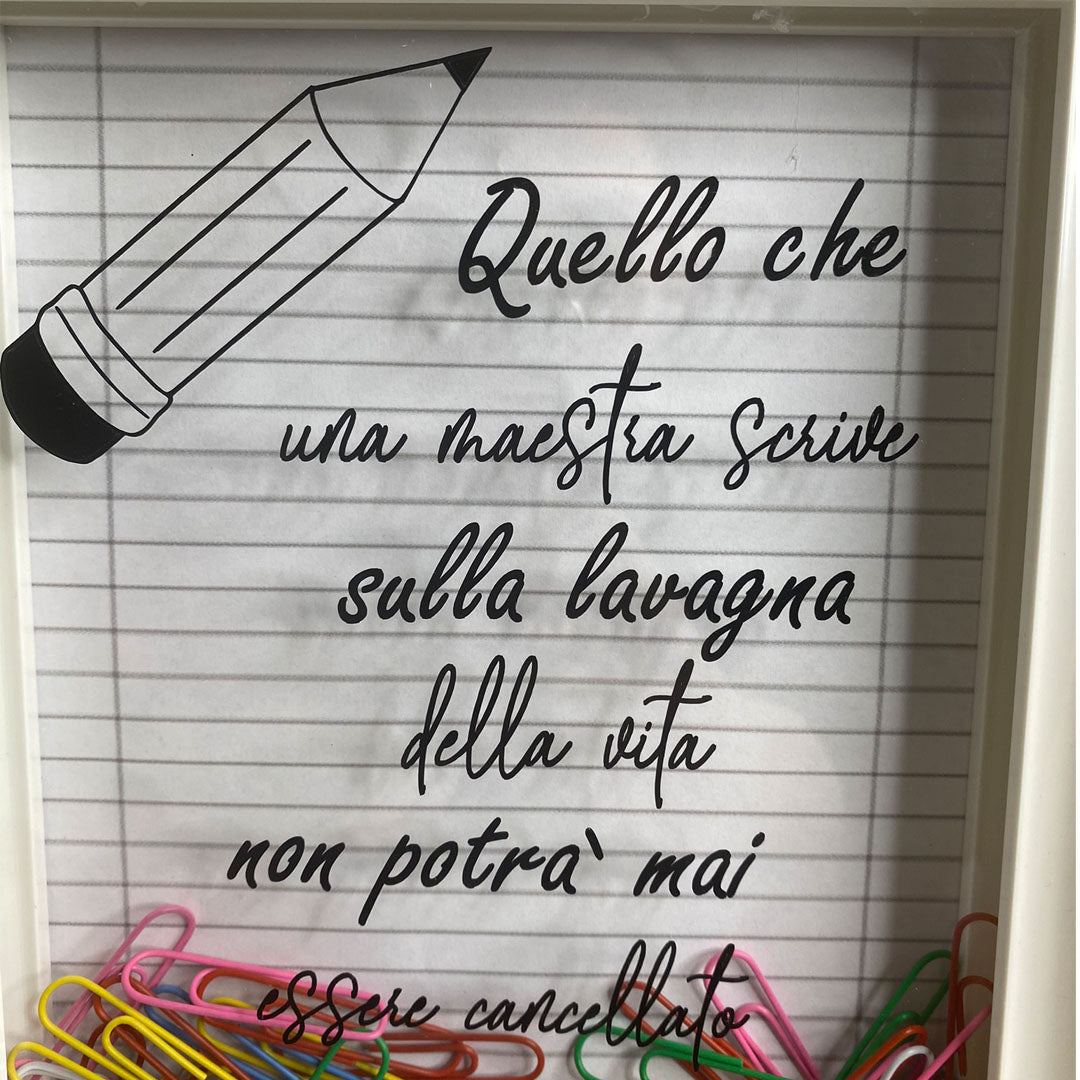 Quello che
una maestra scrive
sulla lavagna
della vita
non potra` mai
essere cancellato